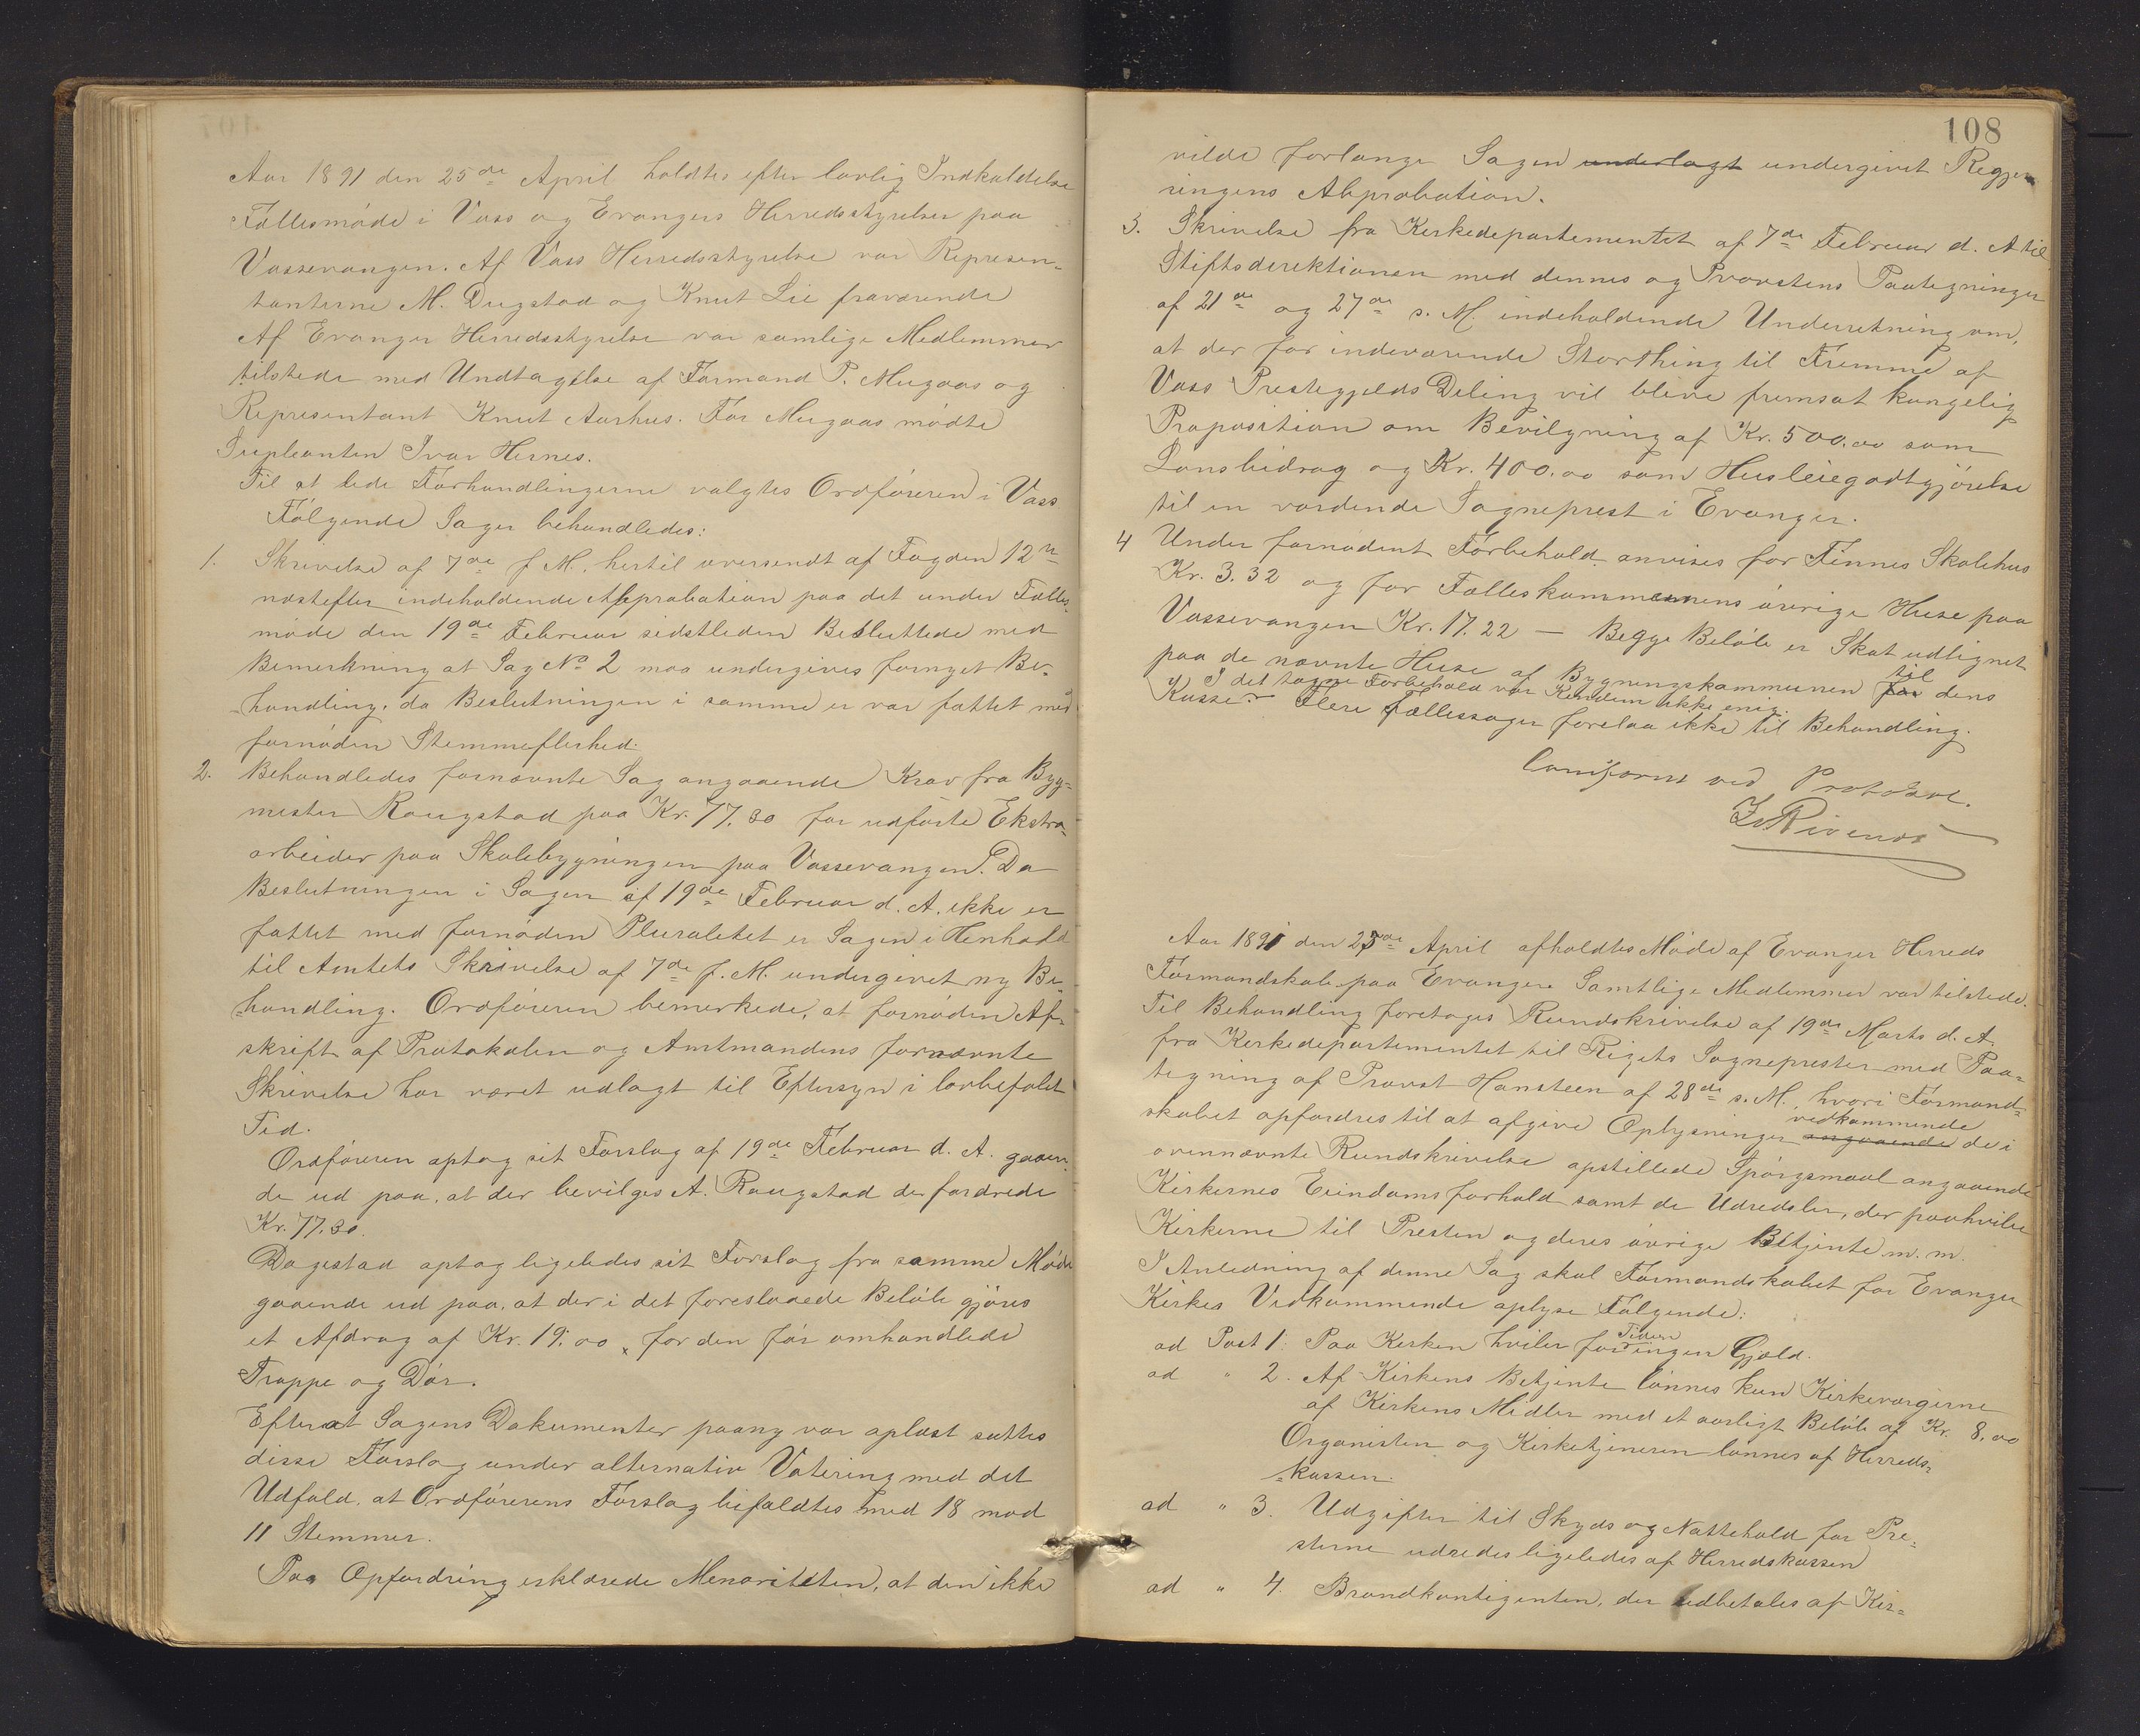 Aar 1891 den 25de April holdtes efter lovlig Indkaldelse
Fællesmøde i Voss og Evangers Herredsstyrelser paa
Vossevangen. Af Voss Herredsstyrelse var Represen-
tanterne M. Dugstad og Knut Lie fraværende
Af Evanger Herredsstyrelse var samlige Medlemmer
tilstede med Undtagelse af Formand P. Mugaas og
Representant Knut Aarhus. For Mugaas mødte
Supleanten Ivar Hernes.
Til at lede Forhandlingerne valgtes Ordføreren i Voss
Følgende Sager behandledes:
1. Skrivelse af 7de f. M. hertil oversendt af Fogden 12te
næstefter indeholdende Approbation paa det under Fælles-
møde den 19de Februar sidstleden Besluttede med
Bemerkning at Sag No 2 maa undergives fornyet Be-
handling, da Beslutningen i samme er var fattet med
fornøden Stemmeflerhed.
2. Behandledes fornævnte Sag angaaende Krav fra Byg-
mester Raugstad paa Kr. 77.30 for udførte Ekstra-
arbeider paa Skolebygningen paa Vossevangen. Da
Beslutningen i Sagen af 19de Februar d. A. ikke er
fattet med fornøden Pluralitet er Sagen i Henhold
til Amtets Skrivelse af 7de f. M. undergivet ny Be-
handling. Ordføreren bemerkede, at fornøden Af-
skrift af Protokolen og Amtmandens fornævnte
Skrivelse har været udlagt til Eftersyn i lovbefalet
Tid.
Ordføreren optog sit Forslag af 19de Februar d. A. gaaen-
de ud paa, at der bevilges A. Raugstad de fordrede
Kr. 77.30.
Dagestad optog ligeledes sit Forslag fra samme Møde
gaaende ud paa, at der i det foreslaaede Beløb gjøres
et Afdrag af Kr. 19.00 for den før omhandlede
Trappe og Dør.
Efterat Sagens Dokumenter paany var oplæst sattes
disse Forslag under alternativ Votering med det
Udfald, at Ordførerens Forslag bifaldtes med 18 mod
11 Stemmer.
Paa Opfordring erklærede Menoriteten, at den ikke
108
vilde forlange Sagen underlagt undergivet Regje-
ringens Abprobation.
3. Skrivelse fra Kirkedepartementet af 7de Februar d. A til
Stiftsderektionen med dennes og Provstens Paategninger
af 21de og 27de s. M. indeholdende Underretning om,
at der for indeværende Storthing til Fremme af
Voss Prestegjelds Deling vil blive fremsat kongelig
Proposition om Bevilgning af Kr. 500.00 som
Lønsbidrag og Kr. 400.00 som Husleiegodtgjørelse
til en vordende Sogneprest i Evanger.
4 Under fornødent Forbehold anvises for Finnes Skolehus
Kr. 3.32 og for Fælleskommunens øvrige Huse paa
Vossevangen Kr. 17.22 — Begge Beløb er Skat udlignet
paa de nævnte Huse af Bygningskommunen for til dens
I det tagne Forbehold var Kindem ikke enig.
Kasse. – Flere Fællessager forelaa ikke til Behandling.
Conform ved Protokol.
Aar 1891 den 25de April afholdtes Møde af Evanger Herreds
Formandskab paa Evanger. Samtlige Medlemmer var tilstede.
Til Behandling foretoges Rundskrivelse af 19de Marts d. A.
fra Kirkedepartementet til Rigets Sogneprester med Paa-
tegning af Provst Hansteen af 28de s. M., hvori Formand-
skabet opfordres til at afgive Oplysninger angaaende vedkommende de i
ovennævnte Rundskrivelse opstillede Spørgsmaal angaaende
Kirkernes Eiendomsforhold samt de Udredsler, der paahviler
Kirkerne til Presten og deres øvrige Betjente m. m.
I Anledning af denne Sag skal Formandskabet for Evanger
Kirkes Vedkommende oplyse Følgende:
ad Post 1. Paa Kirken hviler for Tiden ingen Gjæld.
ad " 2. Af Kirkens Betjente lønnes kun Kirkeværgerne
af Kirkens Midler med et aarligt Beløb af Kr. 8.00
Organisten og Kirketjeneren lønnes af Herreds-
kassen.
ad " 3. Udgifter til Skyds og Nattehold for Pre-
sterne udredes ligeledes af Herredskassen
ad " 4. Brandkontigenten, der udbetales af Kir-